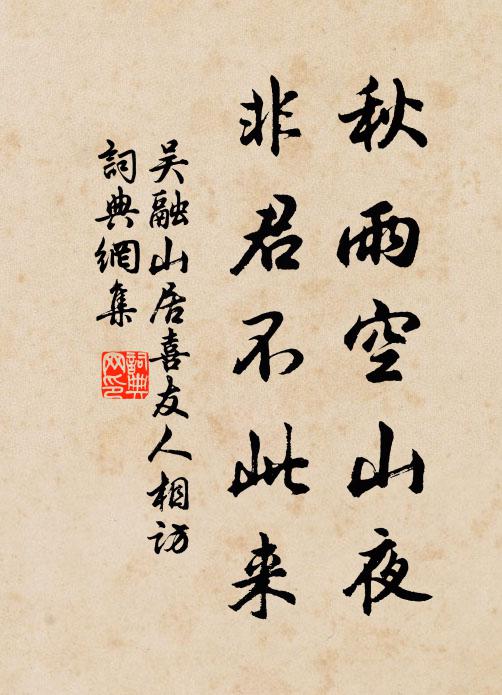 秋雨空山夜
非君不此来
吴融山居喜友人相访
詞典網集
詞典网印